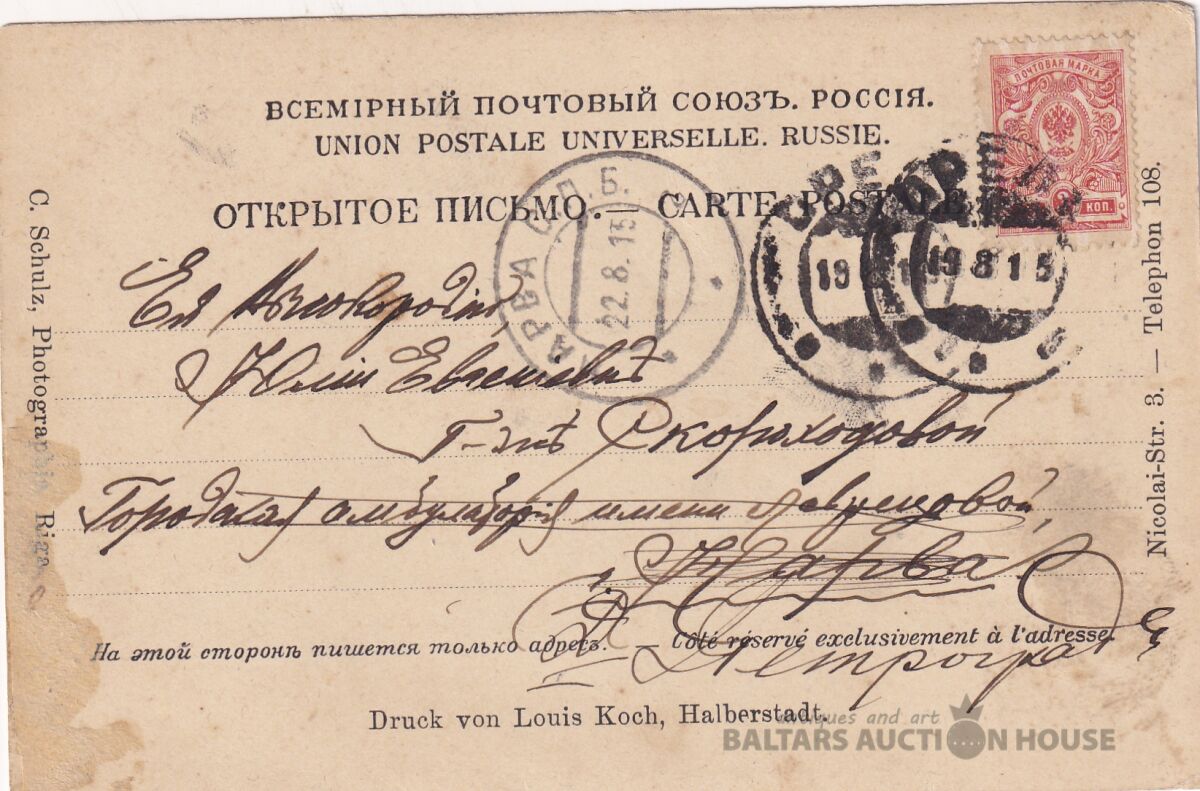 ВСЕМІРНЫЙ ПОЧТОВЫЙ СОЮЗЪ. РОССІЯ.
UNION POSTALE UNIVERSELLE. RUSSIE.
ОТКРЫТОЕ ПИСЬМО. — CARTE POSTALE
ПОЧТОВАЯ МАРКА
КОП.
НАРВА С.П.Б.
22.8.15
19 8 15
Ея Высокородію
Юліи Евгеніевнѣ
Г-жѣ Скороходовой
Городская амбулаторія имени
Нарва
Петрогра
На этой сторонѣ пишется только адресъ. — Côté réservé exclusivement à l'adresse.
Druck von Louis Koch, Halberstadt.
C. Schulz, Photographie, Riga
Nicolai-Str. 3. — Telephon 108.
antiques and art
BALTARS AUCTION HOUSE